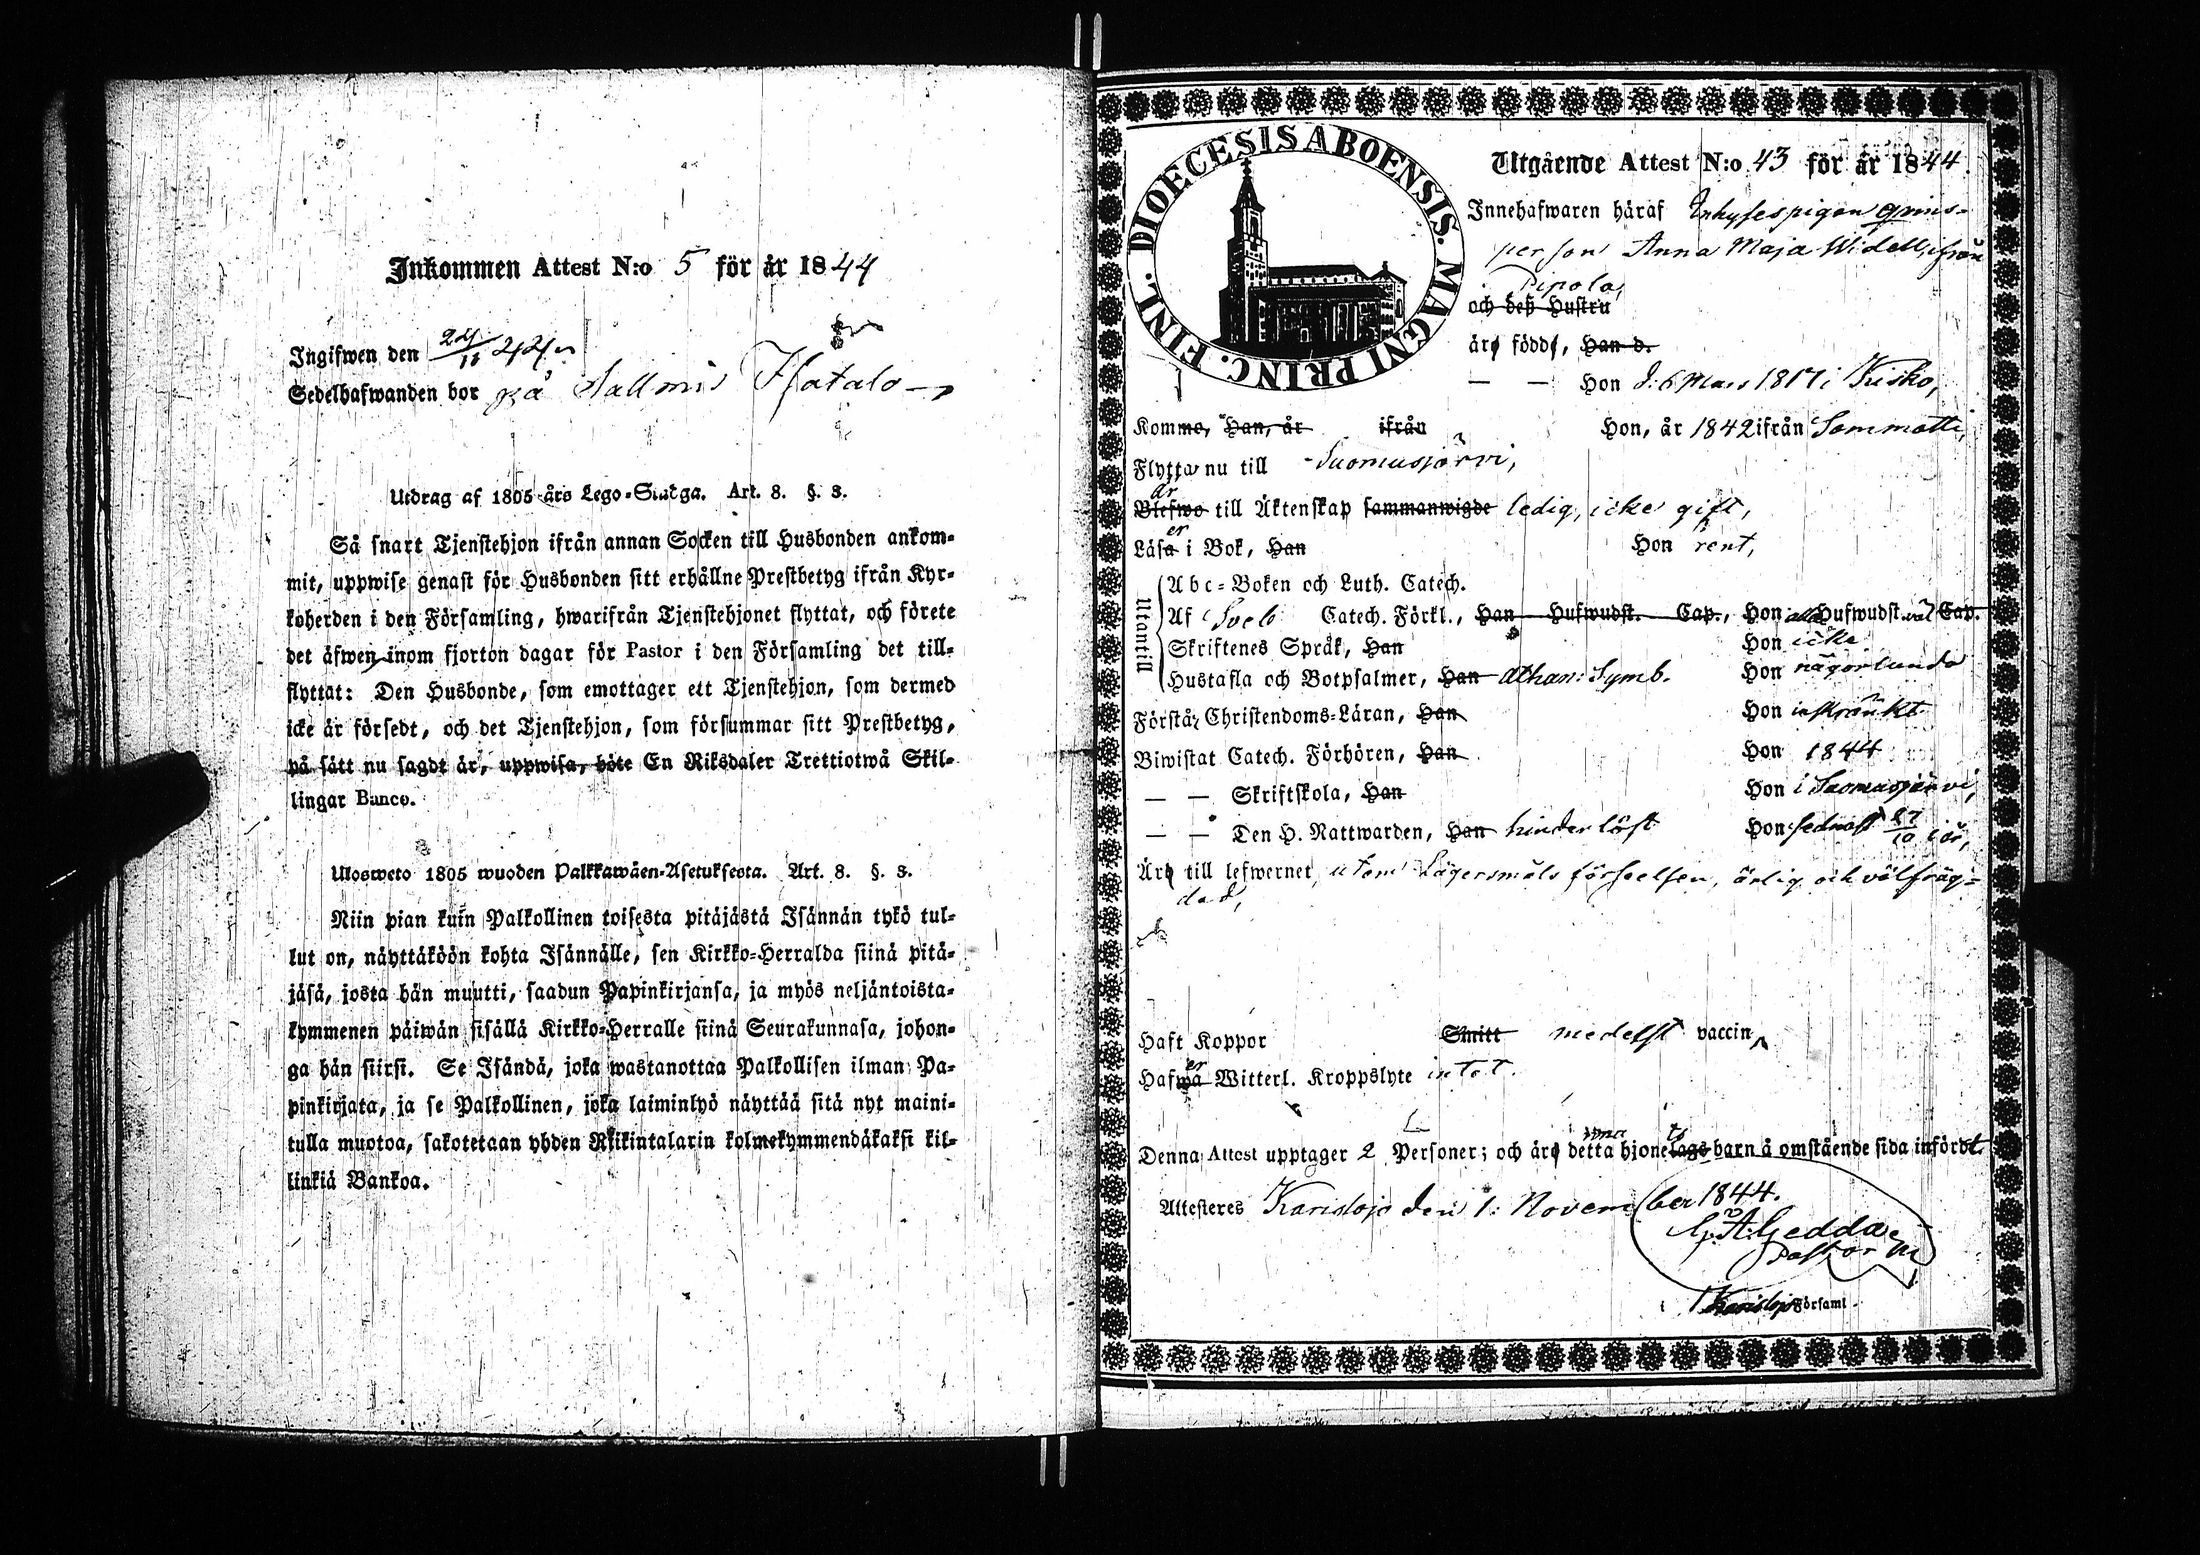 Inkommen Attest N:o 5 för år 1844
Ingifwen den 24/11 44
Sedelhafwanden bor på Salmis Ylatalo
Utdrag af 1805 års Lego-Stadga. Art. 8. §. 3.
Så snart Tjenstehjon ifrån annan Socken till Husbonden ankom-
mit, uppwise genast för Husbonden sitt erhållne Prestbetyg ifrån Kyr-
koherden i den Församling, hwarifrån Tjenstehjonet flyttat, och förete
det äfwen inom fjorton dagar för Pastor i den Församling det till-
flyttat: Den Husbonde, som emottager ett Tjenstehjon, som dermed
icke är försedt, och det Tjenstehjon, som försummar sitt Prestbetyg,
på sätt nu sagdt är, uppwisa, böte En Riksdaler Trettiotwå Skil-
lingar Banco.
Ulosweto 1805 wuoden Palkkawäen-Asetuksesta. Art. 8. §. 3.
Niin pian kuin Palkollinen toisesta pitäjästä Isännän tykö tul-
lut on, näyttäköön kohta Isännälle, sen Kirkko-Herralda siinä pitä-
jäsä, josta hän muutti, saadun Papinkirjansa, ja myös neljäntoista-
kymmenen päiwän sisällä Kirkko-Herralle siinä Seurakunnasa, johon-
ga hän siirsi. Se Isändä, joka wastanottaa Palkollisen ilman Pa-
pinkirjata, ja se Palkollinen, joka laiminlyö näyttää sitä nyt maini-
tulla muotoa, sakotetaan yhden Riikintalarin kolmekymmendäkaksi kil-
linkiä Bankoa.
DIOECESIS ABOENSIS. MAGNI PRINC. FINL.
Utgående Attest N:o 43 för år 1844.
Innehafwaren häraf Inhysespigan qvins-
person Anna Maja Widell, ifrån
Pipola,
och deß Hustru
är född, Han d.
— — Hon d: 6 Mars 1817 i Kisko,
Komme, Han, år ifrån Hon, år 1842 ifrån Sammatti,
Flyttar nu till Suomusjärvi,
är
Blefwo till Äktenskap sammanwigde ledig, icke gift,
er
Läsa i Bok, Han Hon rent,
Utantill
Abc-Boken och Luth. Catech.
Af Sveb Catech. Förkl., Han Hufwudst. Cap., Hon alla Hufwudst. väl Cap.
Skriftenes Språk, Han Hon icke
Hustafla och Botpsalmer, Han Athan: Symb. Hon någorlunda
Förstår Christendoms-Läran, Han Hon inskränkt
Biwistat Catech. Förhören, Han Hon 1844
— — Skriftskola, Han Hon i Suomusjärvi,
— — Den H. Nattwarden, Han hinderlöst Hon sednast 27/10 i år,
Är till lefwernet, utom Lägersmåls förseelsen, ärlig och välfräg-
dad,
Haft Koppor Smitt medelst vaccin
er
Hafwa Witterl. Kroppslyte intet.
Denna Attest upptager 2 Personer; och är detta hjonelags barn å omstående sida infördt.
Attesteres Karislojo den 1: November 1844.
G. A. Gedda
Pastor
i Karislojo Församl.